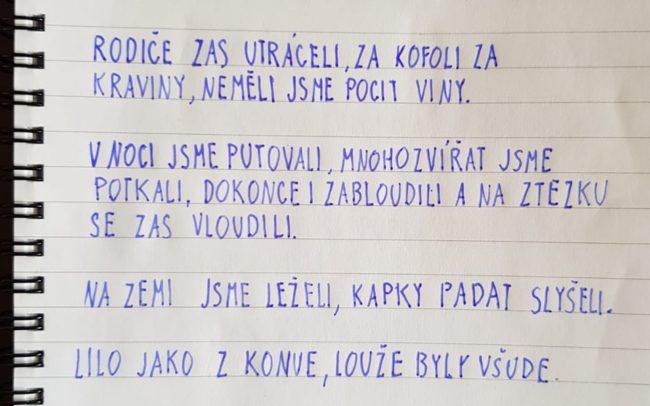 RODIČE ZAS UTRÁCELI, ZA KOFOLI ZA
KRAVINY, NEMĚLI JSME POCIT VINY.
V NOCI JSME PUTOVALI, MNOHOZVÍŘAT JSME
POTKALI, DOKONCE I ZABLOUDILI A NA ZTEZKU
SE ZAS VLOUDILI.
NA ZEMI JSME LEŽELI, KAPKY PADAT SLYŠELI.
LILO JAKO Z KONVE, LOUŽE BYLY VŠUDE.